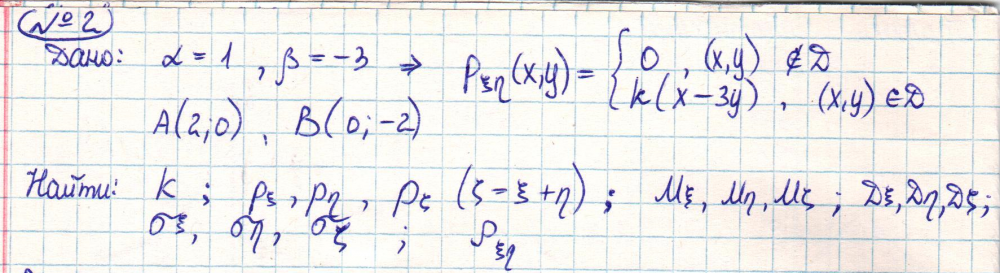 № 2
Дано: α = 1 , β = -3 ⇒ p_ξη(x,y) = { 0 , (x,y) ∉ D
k(x-3y) , (x,y) ∈ D
A(2;0) , B(0;-2)
Найти: k ; p_ξ, p_η , p_ζ (ζ = ξ + η) ; Mξ, Mη, Mζ ; Dξ, Dη, Dζ;
σξ, ση, σζ ; ρ_ξη